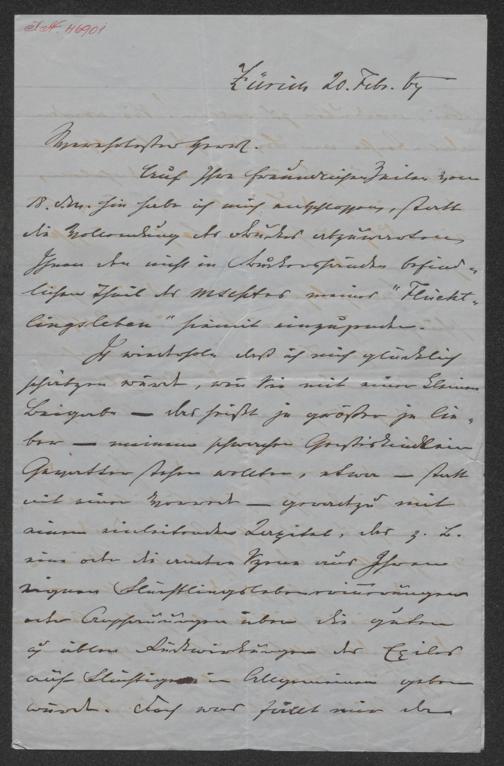 J.N. 46901
Zürich 20. Febr. 67
Verehrtester Herr.
Auf Ihre freundlichen Zeilen vom
18. dM. hin habe ich mich entschlossen, statt
die Vollendung des Druckes abzuwarten,
Ihnen den nicht in Druckershänden befind-
lichen Theil des Mscptes meines "Flücht-
lingsleben" hiemit einzusenden.
Ich wiederhole daß ich mich glücklich
schätzen würde, wenn Sie mit einer kleinen
Beigabe — das heißt je größer je lie-
ber — meinem schwachen Geisteskindlein
Gevatter stehen wollten, etwa — statt
mit einem Vorwort — geradezu mit
einem einleitenden Kapitel, das z. B.
eine oder die andere Szene aus Ihren
eigenen Flüchtlingsleben
oder über die guten
u üblen Rückwirkungen des Exiles
auf Flüchtige im Allgemeinen geben
würde. Doch was fällt mir da